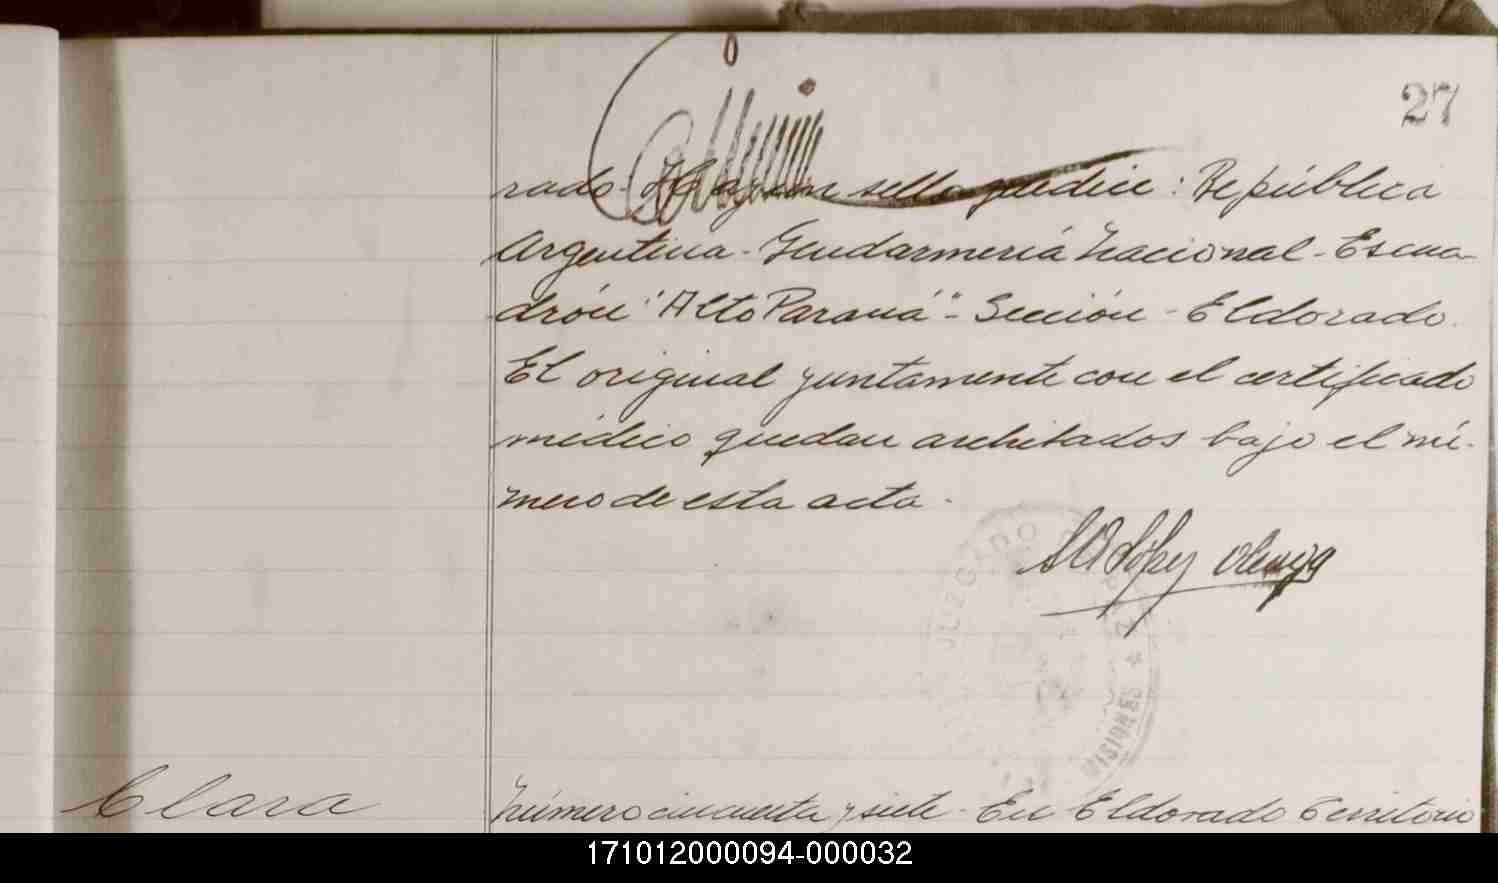 27
rado. Hay un sello que dice: República
Argentina - Gendarmería Nacional - Escua-
drón "Alto Paraná" - Sección - Eldorado.
El original juntamente con el certificado
médico quedan archibados bajo el nú-
mero de esta acta.
JUZGADO
MISIONES
Clara
Número cincuenta y siete - En Eldorado Territorio
171012000094-000032